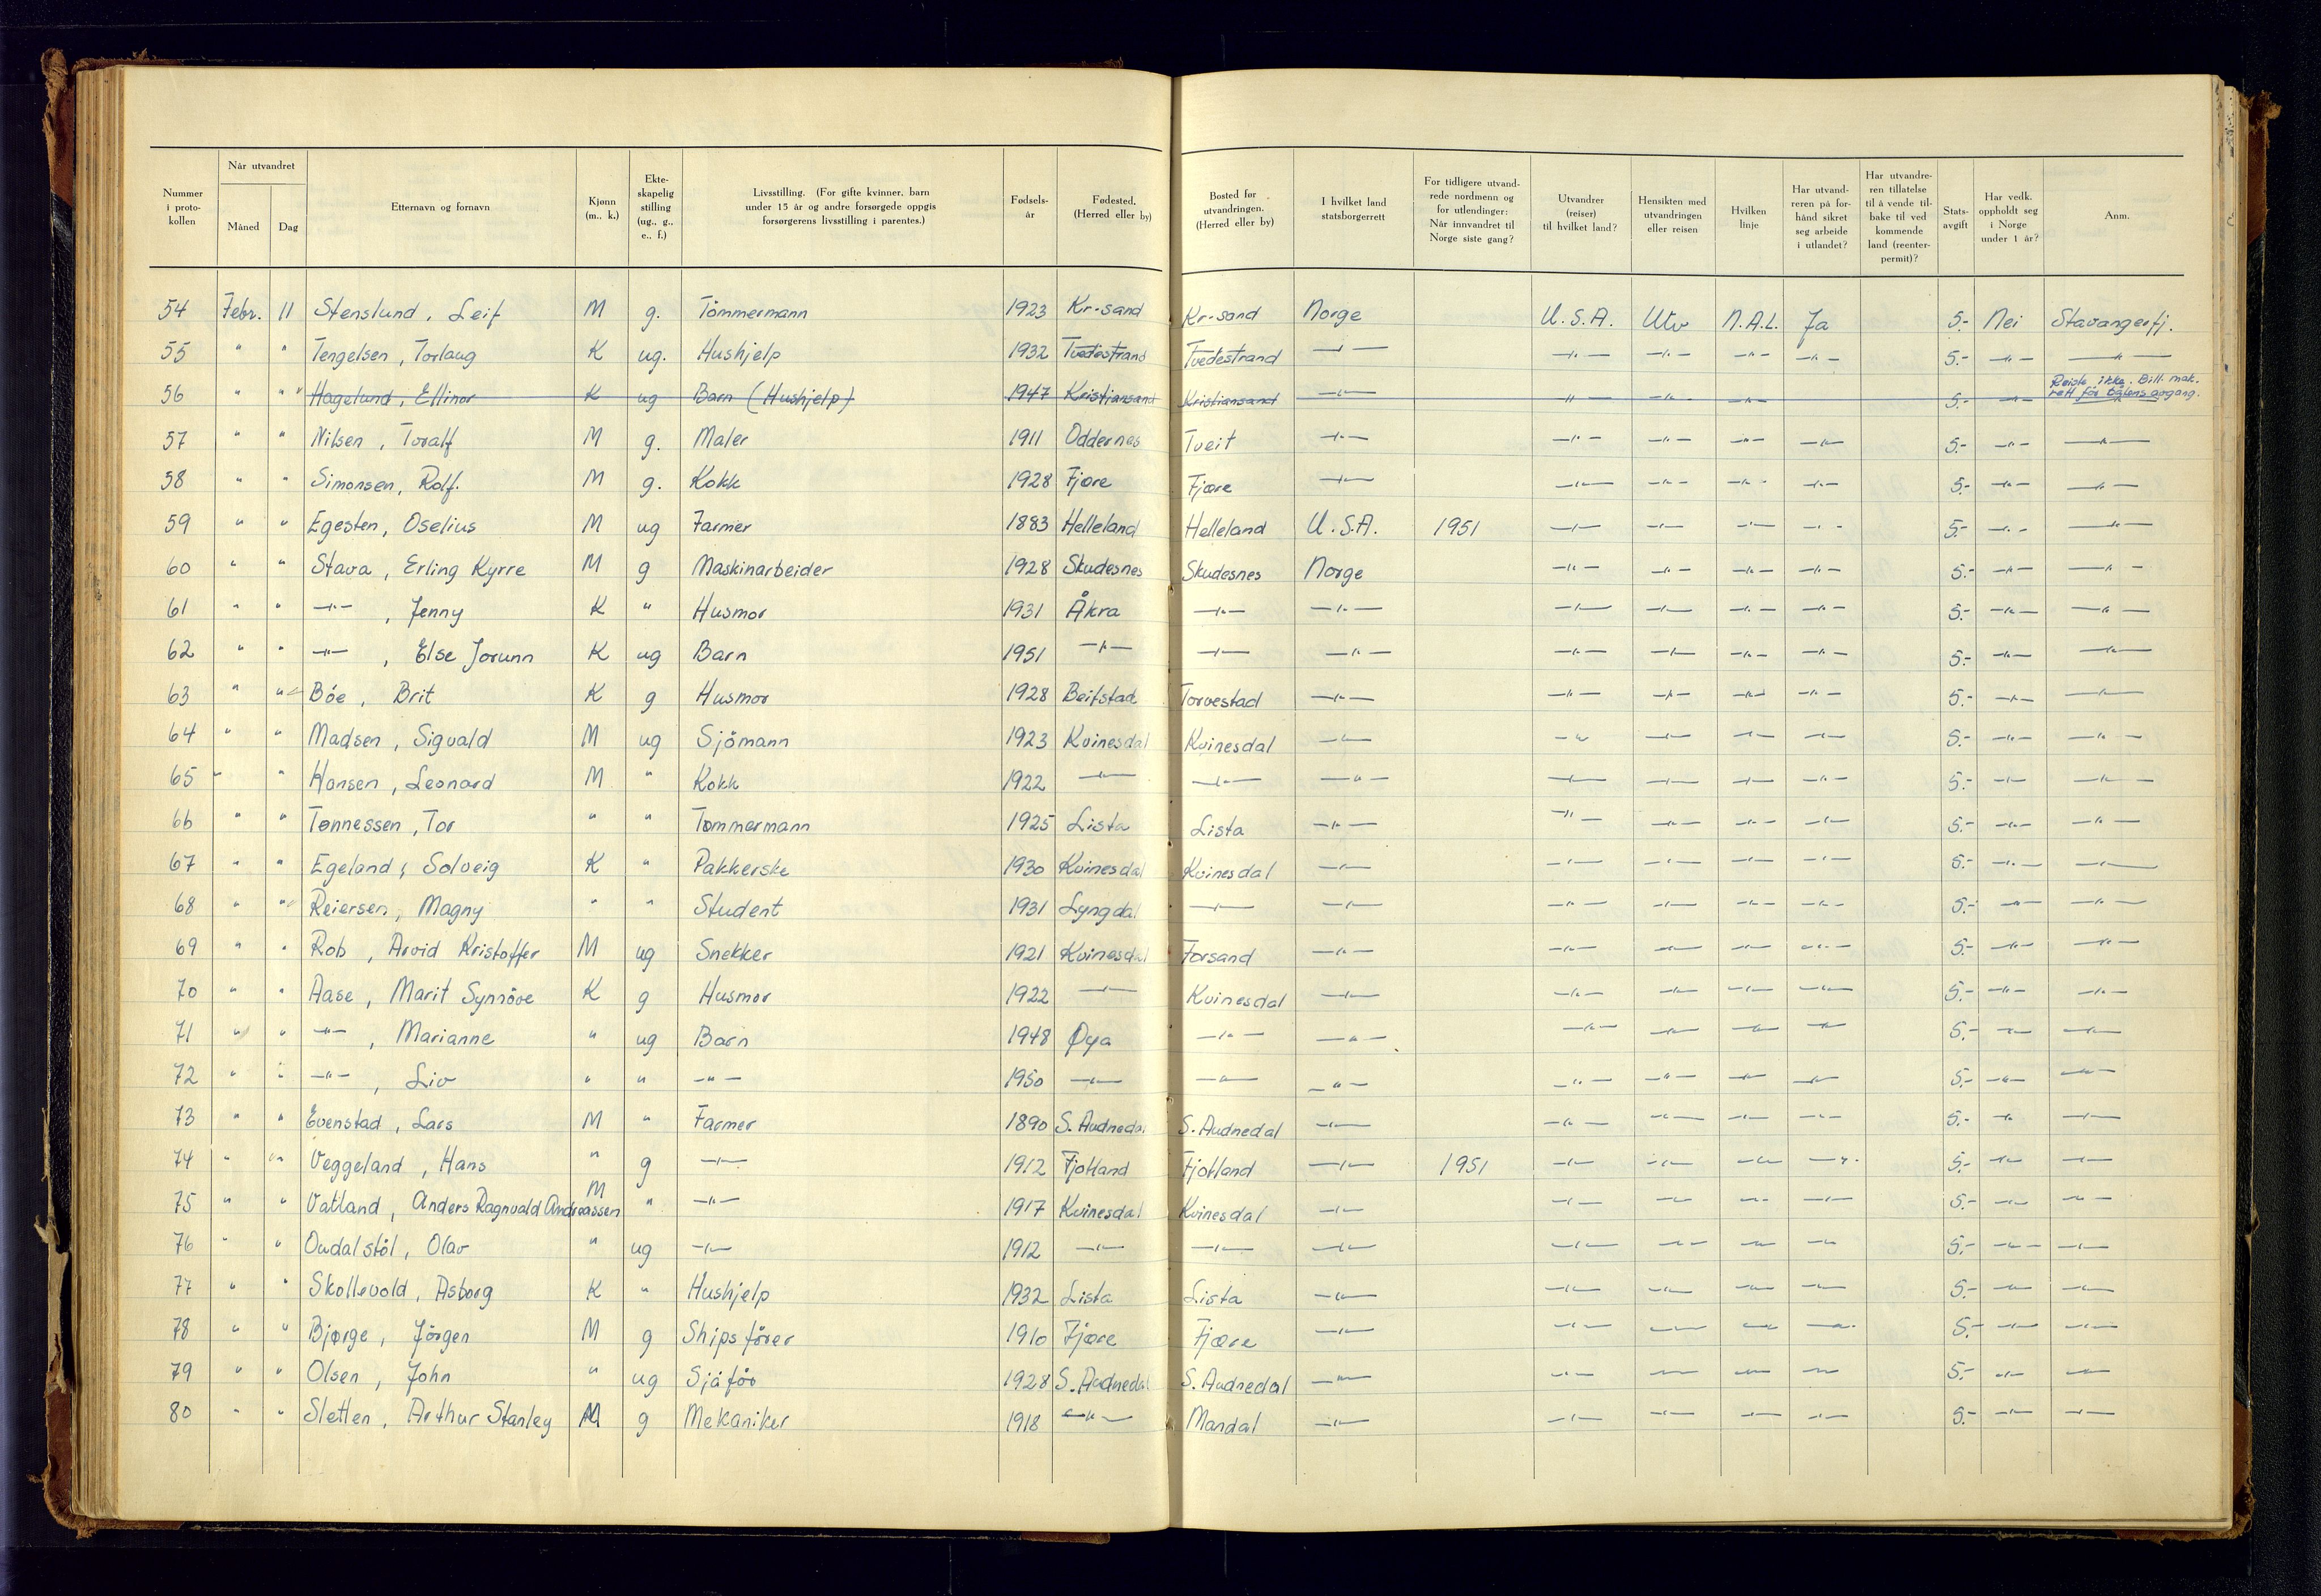 Nummer i proto- kollen | Når utvandret Måned | Dag | Etternavn og fornavn | Kjønn (m., k.) | Ekte- skapelig stilling (ug., g., e., f.) | Livsstilling. (For gifte kvinner, barn under 15 år og andre forsørgede oppgis forsørgerens livsstilling i parentes.) | Fødsels- år | Fødested. (Herred eller by) | Bosted før utvandringen. (Herred eller by) | I hvilket land statsborgerrett | For tidligere utvand- rede nordmenn og for utlendinger: Når innvandret til Norge siste gang? | Utvandrer (reiser) til hvilket land? | Hensikten med utvandringen eller reisen | Hvilken linje | Har utvand- reren på for- hånd sikret seg arbeide i utlandet? | Har utvandre- ren tillatelse til å vende til- bake til ved kommende land (reenter- permit)? | Stats- avgift | Har vedk. oppholdt seg i Norge under 1 år? | Anm.
54 Febr. 11 Stenslund, Leif M g. Tömmermann 1923 Kr-sand Kr-sand Norge U.S.A. Utv N.A.L. Ja 5.- Nei Stavangerfj.
55 " " Tengelsen, Torlaug K ug. Hushjelp 1932 Tvedestrand Tvedestrand —"— —"— —"— —"— —"— 5.- —"— —"—
56 " " Hagelund, Ellinor K ug Barn (Hushjelp) 1947 Kristiansand Kristiansand —"— —"— —"— —"— 5.- —"— Reiste ikke. Bill. mak. rett før båtens avgang.
57 " " Nilsen, Toralf M g. Maler 1911 Oddernes Tveit —"— —"— —"— —"— —"— 5.- —"— —"—
58 " " Simonsen, Rolf. M g. Kokk 1928 Fjære Fjære —"— —"— —"— —"— —"— 5.- —"— —"—
59 " " Egesten, Oselius M ug Farmer 1883 Helleland Helleland U.S.A. 1951 —"— —"— —"— —"— 5.- —"— —"—
60 " " Stava, Erling Kyrre M g Maskinarbeider 1928 Skudesnes Skudesnes Norge —"— —"— —"— —"— 5.- —"— —"—
61 " " —"—, Jenny K " Husmor 1931 Åkra —"— —"— —"— —"— —"— —"— 5.- —"— —"—
62 " " —"—, Else Jorunn K ug Barn 1951 —"— —"— —"— —"— —"— —"— —"— 5.- —"— —"—
63 " " Böe, Brit K g Husmor 1928 Beitstad Torvestad —"— —"— —"— —"— —"— 5.- —"— —"—
64 " " Madsen, Sigvald M ug Sjömann 1923 Kvinesdal Kvinesdal —"— —"— —"— —"— —"— 5.- —"— —"—
65 " " Hansen, Leonard M " Kokk 1922 —"— —"— —"— —"— —"— —"— —"— 5.- —"— —"—
66 " " Tønnessen, Tor " " Tømmermann 1925 Lista Lista —"— —"— —"— —"— —"— 5.- —"— —"—
67 " " Egeland, Solveig K " Pakkerske 1930 Kvinesdal Kvinesdal —"— —"— —"— —"— —"— 5.- —"— —"—
68 " " Reiersen, Magny " " Student 1931 Lyngdal —"— —"— —"— —"— —"— —"— 5.- —"— —"—
69 " " Rob, Arvid Kristoffer M ug Snekker 1921 Kvinesdal Forsand —"— —"— —"— —"— —"— 5.- —"— —"—
70 " " Aase, Marit Synnöve K g Husmor 1922 —"— Kvinesdal —"— —"— —"— —"— —"— 5.- —"— —"—
71 " " —"—, Marianne " ug Barn 1948 Øya —"— —"— —"— —"— —"— —"— 5.- —"— —"—
72 " " —"—, Liv " " —"— 1950 —"— —"— —"— —"— —"— —"— —"— 5.- —"— —"—
73 " " Evenstad, Lars M " Farmer 1890 S. Audnedal S. Audnedal —"— —"— —"— —"— —"— 5.- —"— —"—
74 " " Veggeland, Hans " g —"— 1912 Fjotland Fjotland —"— 1951 —"— —"— —"— —"— 5.- —"— —"—
75 " " Vatland, Anders Ragnvald Andreassen M " —"— 1917 Kvinesdal Kvinesdal —"— —"— —"— —"— —"— 5.- —"— —"—
76 " " Omdalstöl, Olav " ug —"— 1912 —"— —"— —"— —"— —"— —"— —"— 5.- —"— —"—
77 " " Skollevold, Asborg K " Hushjelp 1932 Lista Lista —"— —"— —"— —"— —"— 5.- —"— —"—
78 " " Bjørge, Jörgen M g Skipsförer 1910 Fjære Fjære —"— —"— —"— —"— —"— 5.- —"— —"—
79 " " Olsen, John " ug Sjåför 1928 S. Audnedal S. Audnedal —"— —"— —"— —"— —"— 5.- —"— —"—
80 " " Sletten, Arthur Stanley M g Mekaniker 1918 —"— Mandal —"— —"— —"— —"— —"— 5.- —"— —"—